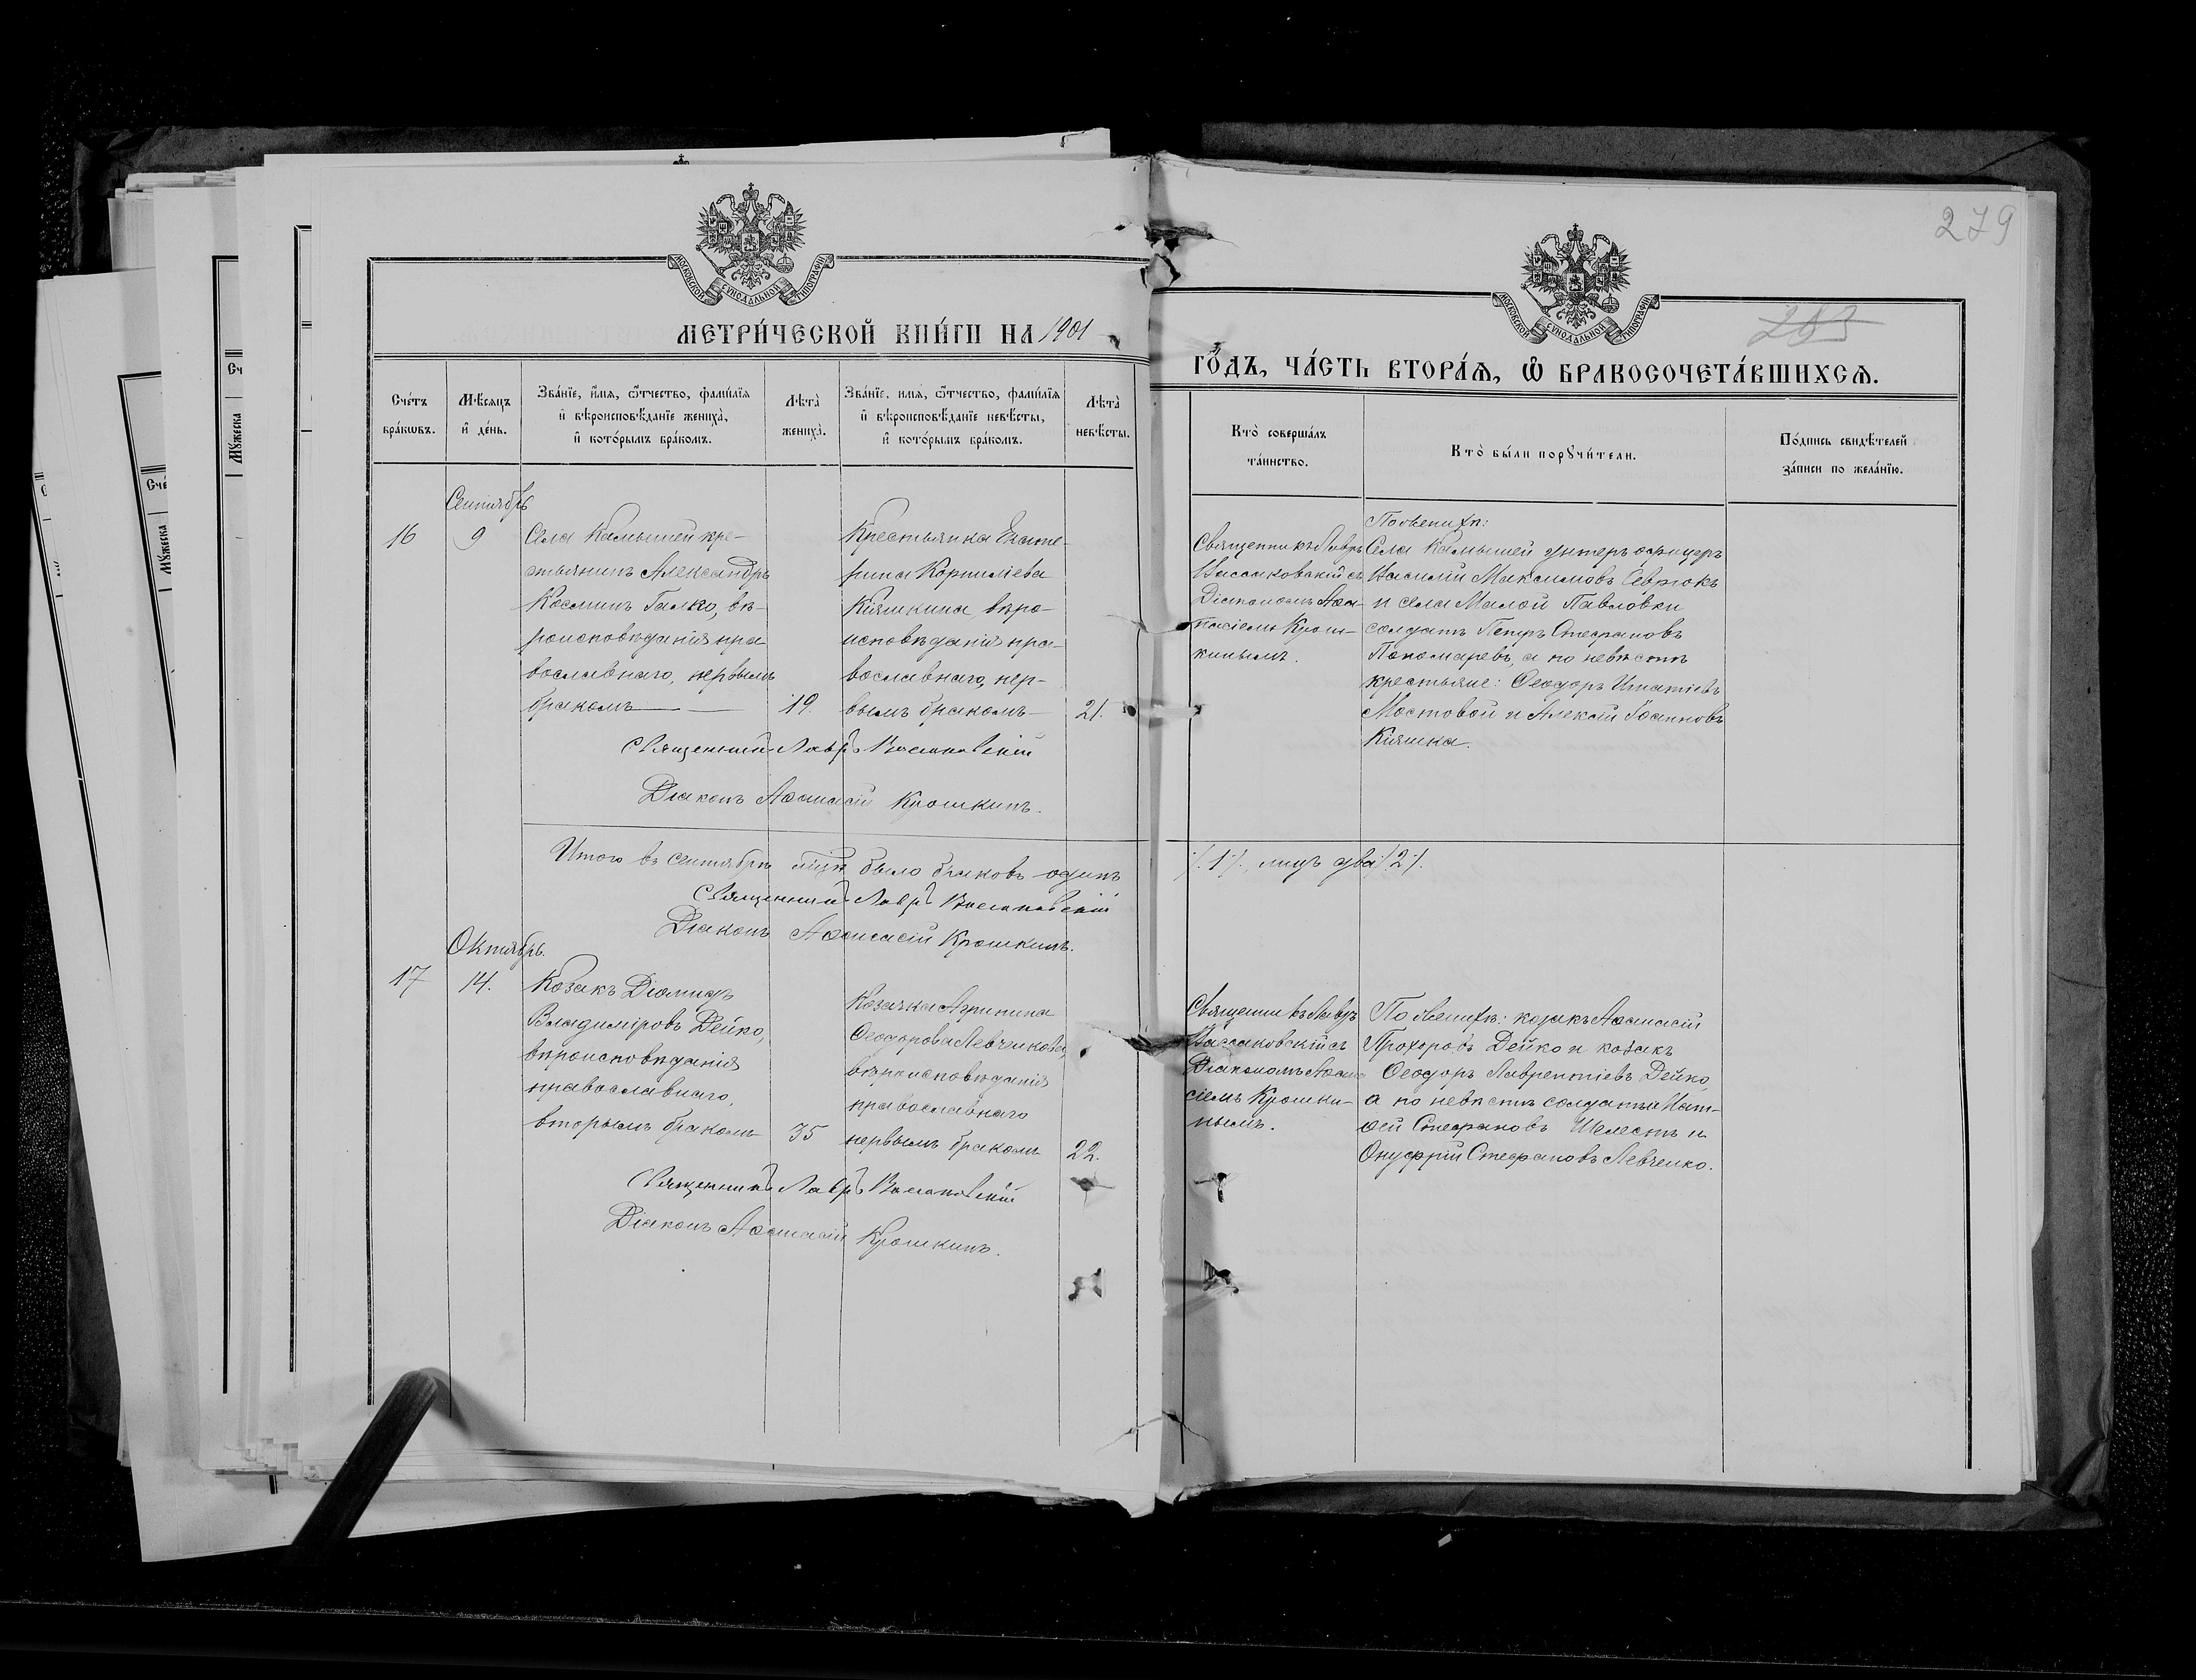 279
203
МОСКОВСКОЙ СУНОДАЛЬНОЙ ТИПОГРАФІИ
МОСКОВСКОЙ СУНОДАЛЬНОЙ ТИПОГРАФІИ
МЕТРИ́ЧЕСКОЙ КНИ́ГИ НА 1901
ГО́ДЪ, ЧА́СТЬ ВТОРА́Я, Ѡ БРАКОСОЧЕТА́ВШИХСЯ.
Сче́тъ
бра́кѡвъ.
Мѣ́сяцъ
и де́нь.
Зва́нїе, и́мя, ѻ́тчество, фами́лїя
и вѣроисповѣ́данїе жениха̀,
и кото́рымъ бра́комъ.
Лѣта̀
жениха̀.
Зва́нїе, имя, ѻ́тчество, фами́лїя
и вѣроисповѣ́данїе невѣ́сты,
и кото́рымъ бра́комъ.
Лѣта̀
невѣ́сты.
Кто̀ соверша́лъ
та́инство.
Кто̀ бы́ли порꙋчи́тели.
По́дпись свидѣ́телей
за́писи по жела́нїю.
Сентябрь
16
9
Села Камышей кре-
стьянинъ Александръ
Косминъ Галко, вѣ-
роисповѣданія пра
вославнаго, первымъ
бракомъ
19.
Крестьянка Екате-
рина Корниліева
Кіяшкина, вѣро-
исповѣданія пра-
вославнаго, пер-
вымъ бракомъ
21.
Священникъ Лавръ
Васильковскій съ
Діакономъ Аѳа-
насіемъ Крош-
кинымъ.
По женихѣ:
Села Камышей унтеръ офицеръ
Василій Максимовъ Севрюкъ
и села Малой Павловки
солдатъ Петръ Стефановъ
Пономаревъ, а по невѣстѣ
крестьяне: Ѳеодоръ Игнатіевъ
Мостовой и Алексій Іоанновъ
Кіяшка.
Священникъ Лавръ
Діаконъ Аѳанасій Крошкинъ.
Итого въ сентябрѣ мцѣ было браковъ одинъ
/.1/., лицъ два /.2/.
Священникъ Лавръ
Діаконъ Аѳанасій Крошкинъ.
Октябрь.
17
14.
Козакъ Діомидъ
Владиміровъ Дейко,
вѣроисповѣданія
православнаго,
вторымъ бракомъ
35
Козачка Агрипина
Ѳеодорова Левченкова,
вѣроисповѣданія
православнаго
первымъ бракомъ
22.
Священникъ Лавръ
съ
Діакономъ Аѳана
сіемъ Крошки-
нымъ.
По женихѣ: козакъ Аѳанасій
Прохоровъ Дейко и козакъ
Ѳеодоръ Лаврентіевъ Дейко,
а по невѣстѣ солдаты Мат-
ѳей Стефановъ Шелестъ и
Онуфрій Стефановъ Левченко.
Священникъ Лавръ
Діаконъ Аѳанасій Крошкинъ.